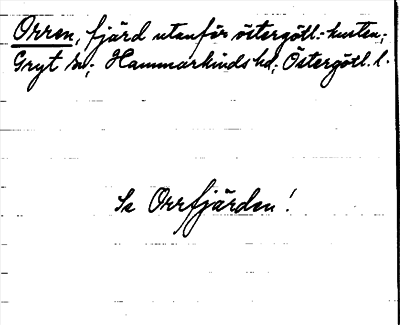 Orren, fjärd utanför östergötl.-kusten;
Gryt sn; Hammarkinds hd; Östergötl. l.
Se Orrfjärden!